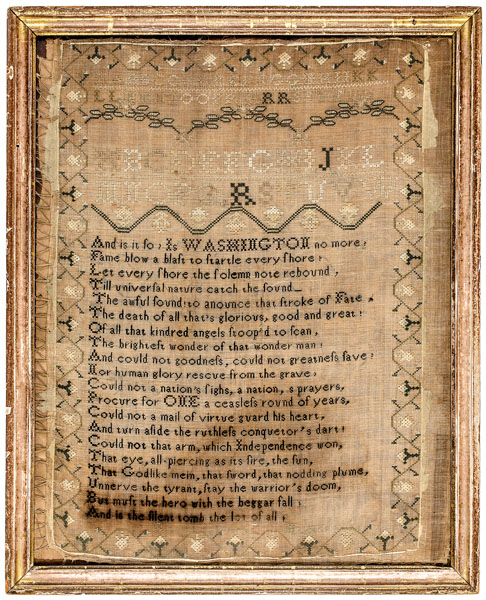 KK
LL RR
B G J K L
R S
And is it ſo? Is WASHINGTON no more?
Fame blow a blaſt to ſtartle every ſhore?
Let every ſhore the ſolemn note rebound,
Till univerſal nature catch the ſound_
The awful ſound! to anounce that ſtroke of Fate,
The death of all that's glorious, good and great!
Of all that kindred angels ſtoop'd to ſcan,
The brighteſt wonder of that wonder man!
And could not goodneſs, could not greatneſs ſave?
Nor human glory reſcue from the grave?
Could not a nation's ſighs, a nation,s prayers,
Procure for ONE a ceaſleſs round of years,
Could not a mail of virtue guard his heart,
And turn aſide the ruthleſs conqueror's dart?
Could not that arm, which Independence won,
That eye, all-piercing as its fire, the ſun,
That Godlike mein, that ſword, that nodding plume,
Unnerve the tyrant, ſtay the warrior's doom,
But muſt the hero with the beggar fall?
And is the ſilent tomb the lot of all?